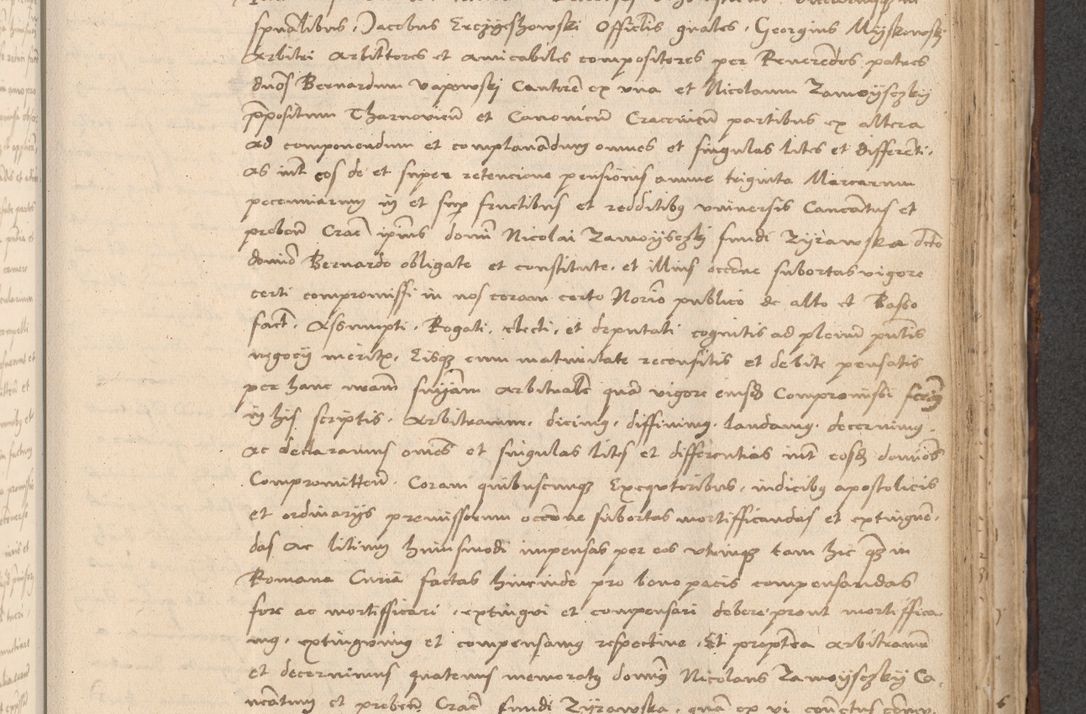 spualibus, Jacobus Erczyeszowski Officialis gnales, Georgius Myskowski
Arbitri Arbittores et amicabiles compositores per Reuerendos patres
dnos Bernardum Vapowski Cantorem ex vna et Nicolaum Zamoyschky
ppositum Tharnouien et Canonicum Cracouien partibus ex altera
ad componendum et complanandum omnes et singulas lites et differenti,
as int eos de et super retencione pensionis annue triginta Marcarum
pecuniarum in et sup fructibus et redditibus vniuersis Canonicatus et
preben Crac ipius domi Nicolai Zamoysczky fundi Zyrawska dicto
domino Bernardo obligate et constitute, et illius occone subortas vigore
certi compromissi in nos coram certo Notrio publico de alto et Basso
fact, Assumpti, Rogati, electi, et deputati cognitis ad plenum putis
negocy meritis, Eisque cum maturitate recensitis et debite pensatis
per hanc nram snyam arbitrale quam vigore eiusdem Compromissi ferimus
in his scriptis, Arbitramur, dicimus, diffinimus, laudamus, decernimus,
ac declaramus omnes et singulas lites et differentias int eosdem dominos
Compromitten, Coram quibuscunque Executoribus, iudicibus apostolicis
et ordinarys premissorum occone subortas mortifficandas et extinguen,
das ac litium huiusmodi impensas per eos vtrinque tam hic quam in
Romana Curia factas hincinde pro bono pacis compensandas
fore ac mortifficari, extingui et compensari debere prout mortiffica
mus, extinguimus et compensamus respectiue, Et propterea arbitramur
et decernimus quatenus memoratus dominus Nicolaus Zamoysczky Ca,
nonicatum et preben Crac fundi Zyrawska, quam ex vi